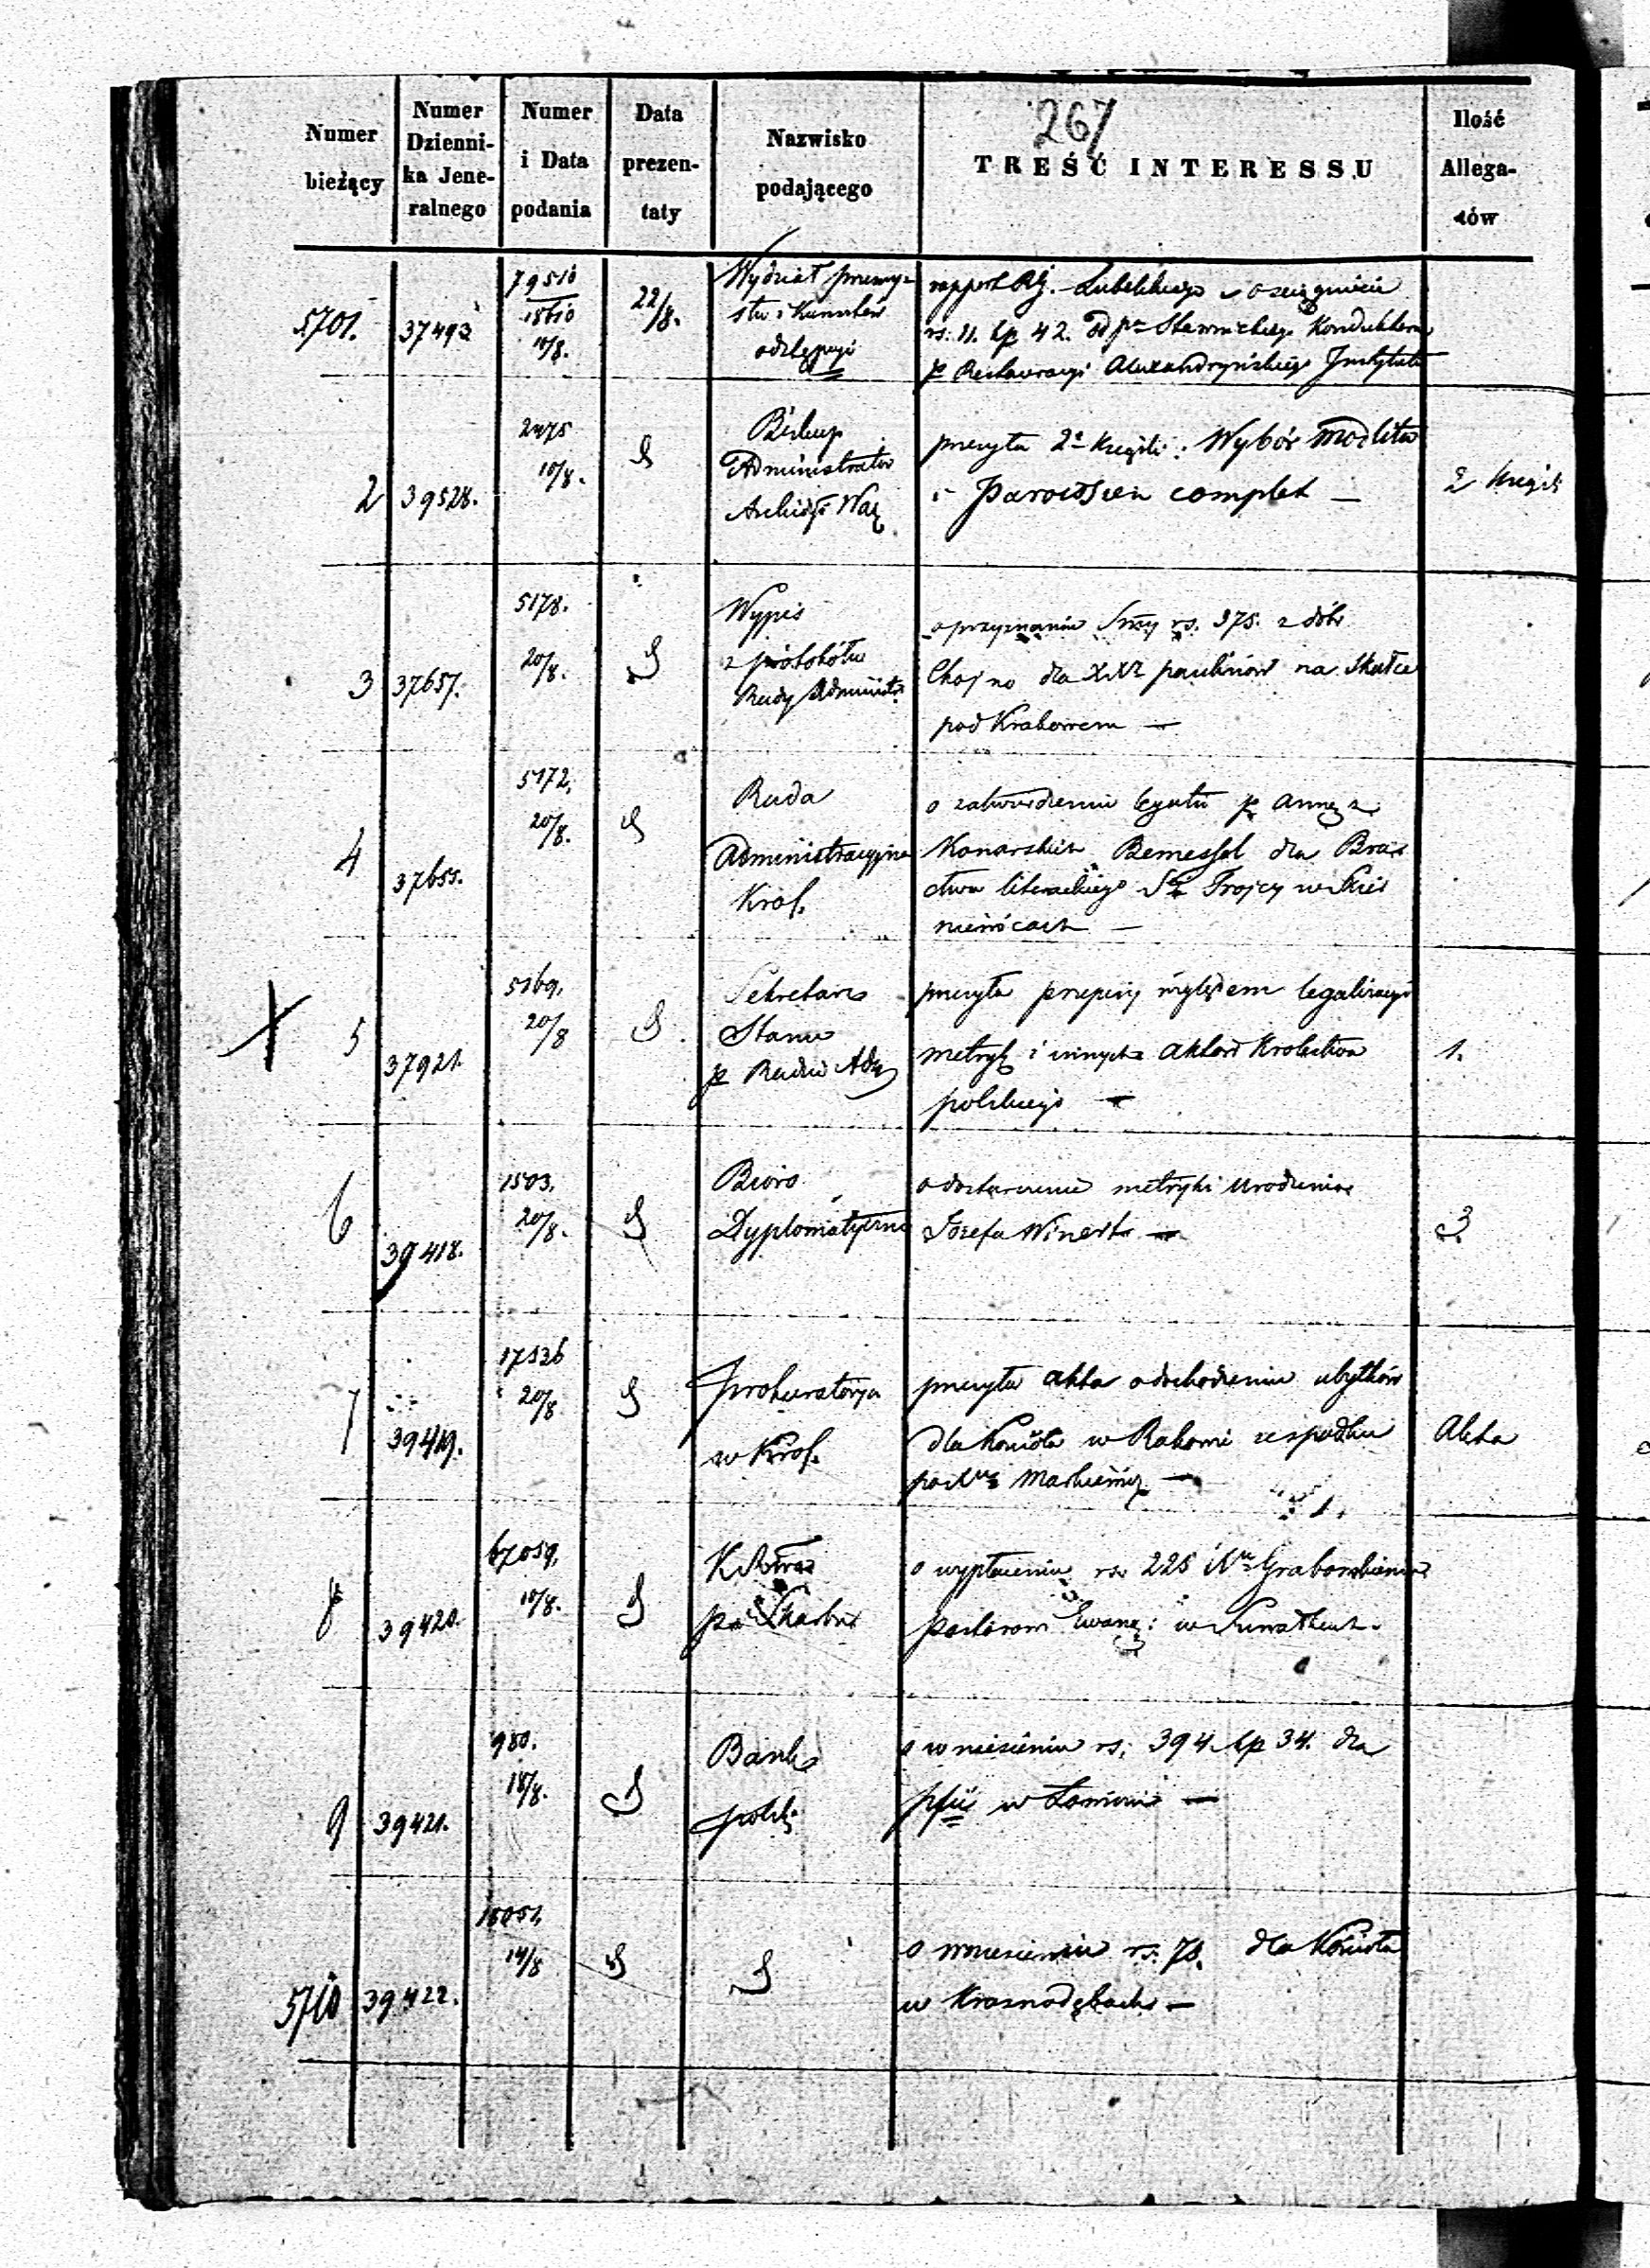 267
Numer bieżący
Numer Dzienni-ka Jene-ralnego
Numer i Data podania
Data prezen-taty
Nazwisko podającego
TREŚĆ INTERESSU
Ilość Allega-tów
5701. 37493 79510 18610 10/8. 22/8.
Wydział przemy-
stu i Kunsztów
odstępuje
rapport Lubelskiego o
rs. 11. kp 42. Konduktora
p Restauracyi Alexandryńskiego Instytutu
2 39528. 2475 10/8.
Biskup
Administrator
Archid. War.
przesyła 2 Książki: Wybór Modlitw
i Paroissien complet —
2 Książk
3 37657. 5178. 20/8.
Wypis
z protokółu
Rady Administr.
o przyznaniu Summy rs. 375. z dóbr
Chojno dla XX Paulinów na Skałce
pod Krakowem —
4 37655. 5172. 20/8.
Rada
Administracyjna
Król.
o zatwierdzeniu legatu p Annę z
Konarskich dla Brac
twa literackiego Trojcy w Skier
niewicach —
5 37921. 5169. 20/8
Sekretarz
Stanu
p Radzie Adm
przesyła przepisy względem legalizacyi
metryk i innych aktów Królestwa
polskiego —
1.
6 39418. 1503. 20/8.
Biuro
Dyplomatyczne
o dostarczenie metryki urodzenia
Józefa Winert —
3
7 39419. 17536 20/8
Prokuratorya
w Król.
przesyła akta o dochodzeniu
dla Kościoła w Rakowie ze spadku
po Markiewicz —
Akta
8 39420. 67059. 10/8.
K Rząd
p Skarbu
o wypłacenie rs. 225 Grabowskiemu
pastorowi Ewang: w Suwałkach.
9 39421. 980. 18/8.
Bank
polsk.
o wniesieniu rs. 394 kp 34. dla
w Łomie —
5710 39422. 18051. 14/8
o wniesieniu rs. 78. dla Kościoła
w Krasnodębach —